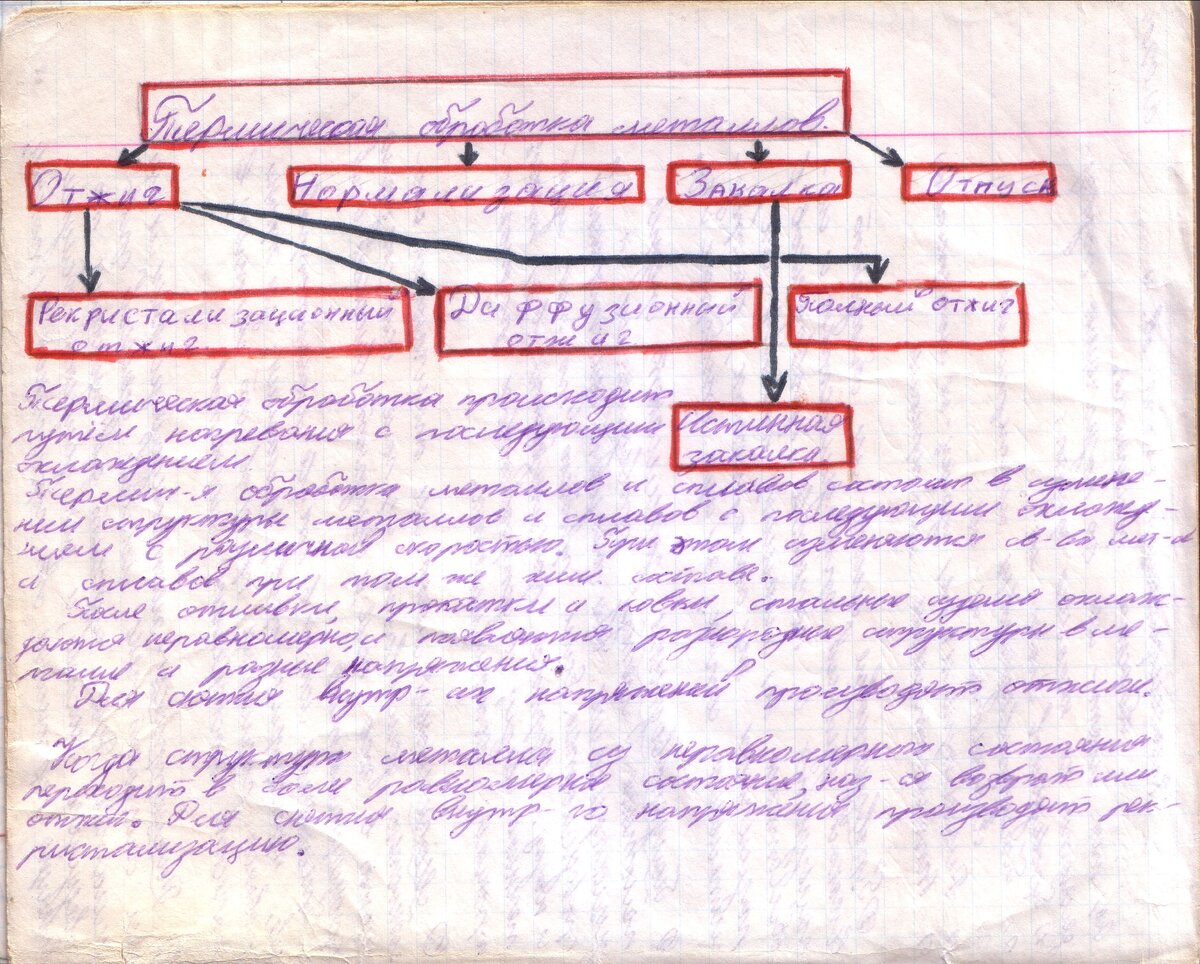 Термическая обработка металлов.
Отжиг Нормализация Закалка Отпуск
Рекристализационный Диффузионный Полный отжиг
отжиг отжиг
Термическая обработка происходит
путём нагревания с последующим
охлаждением.
Истинная
закалка
Термич-я обработка металлов и сплавов состоит в измене-
нии структуры металлов и сплавов с последующим охлажде-
нием с различной скоростью. При этом изменяются св-ва мет-а
и сплавов при том же хим. составе.
После отливки, прокатки и ковки, стальные изделия охлаж-
даются неравномерно, и появляются разнородные структуры в ме-
талле и разные напряжения.
Для снятия внутр-их напряжений производят отжиги.
Когда структура металла из неравномерного состояния
переходит в более равномерное состояние, наз-ся возврат или
отжиг. Для снятия внутр-го напряжения производят рек-
ристализацию.